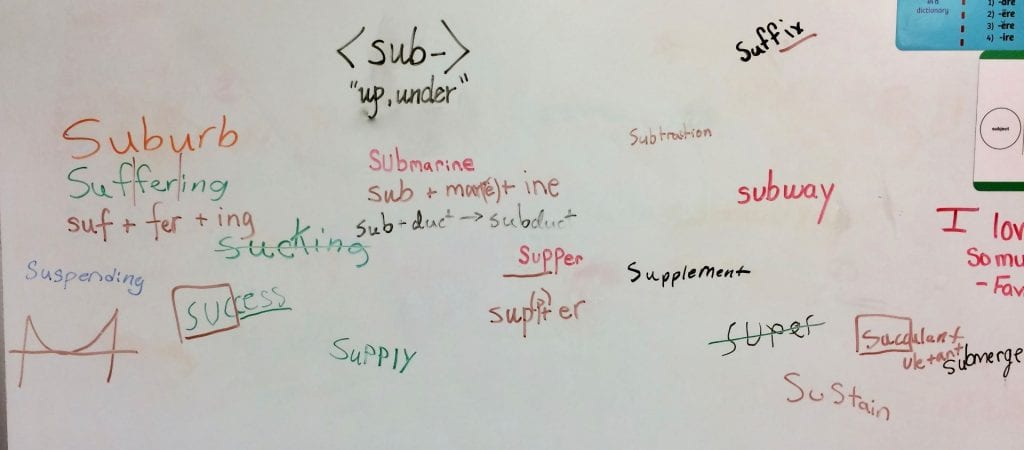 <sub->
"up, under"
Suffix
in a
dictionary
1) -are
2) -ere
3) -ere
4) -ire
subject
Suburb
Suf/fer/ing
suf + fer + ing
sucking
Suspending
success
Supply
Submarine
sub + mar(e) + ine
sub - duct → subduct
Supper
sup(p) + er
Subtraction
subway
Supplement
super
Succulant
Submerge
Sustain
I lov
So mu
- Fav